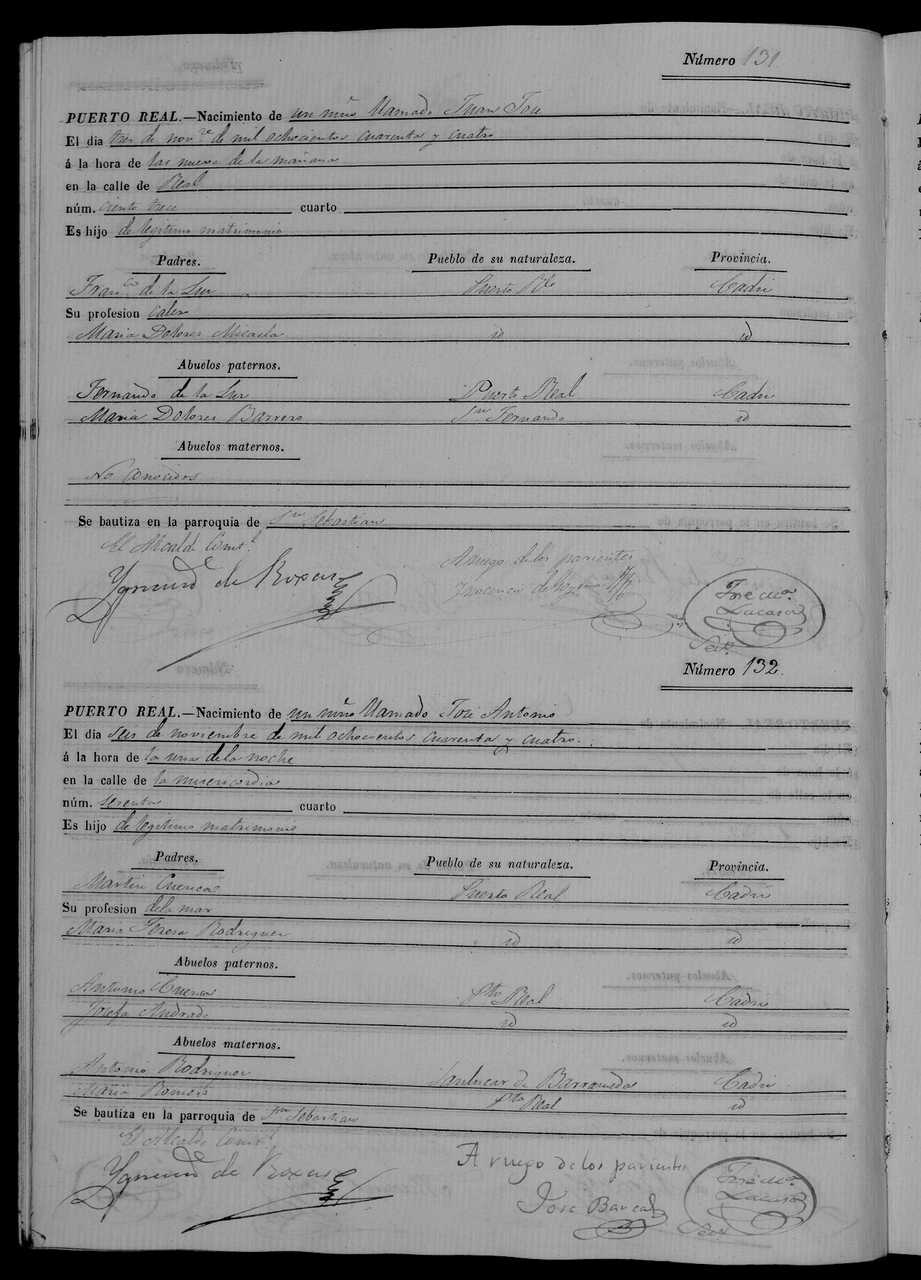 Número 131
PUERTO REAL.—Nacimiento de un niño llamado Juan José
El dia tres de nov.e de mil ochocientos cuarenta y cuatro
á la hora de las nueve de la mañana
en la calle de Real
núm. ciento trece cuarto
Es hijo de legitimo matrimonio
Padres. Pueblo de su naturaleza. Provincia.
Fran.co de la Luz Puerto Rl. Cadiz
Su profesion
Maria Dolores Micaela id id
Abuelos paternos.
Fernando de la Luz Puerto Real Cadiz
Maria Dolores Barrero S.n Fernando id
Abuelos maternos.
No conocidos
Se bautiza en la parroquia de S.n Sebastian
El Alcalde Const.l
Ygnacio de Roxas
A ruego de los parientes
José M.a
Lucasa
Número 132
PUERTO REAL.—Nacimiento de un niño llamado José Antonio
El dia seis de noviembre de mil ochocientos cuarenta y cuatro.
á la hora de la una de la noche
en la calle de la misericordia
núm. cuarto
Es hijo de legitimo matrimonio
Padres. Pueblo de su naturaleza. Provincia.
Martin Cuenca Puerto Real Cadiz
Su profesion de la mar
Maria Teresa Rodriguez id id
Abuelos paternos.
Antonio Cuenca P.to Real Cadiz
Josefa Andrade id id
Abuelos maternos.
Antonio Rodriguez Sanlucar de Barrameda Cadiz
Maria Romero P.to Real id
Se bautiza en la parroquia de S.n Sebastian
El Alcalde Const.l
Ygnacio de Roxas
A ruego de los parientes
José
José M.a
Lucasa